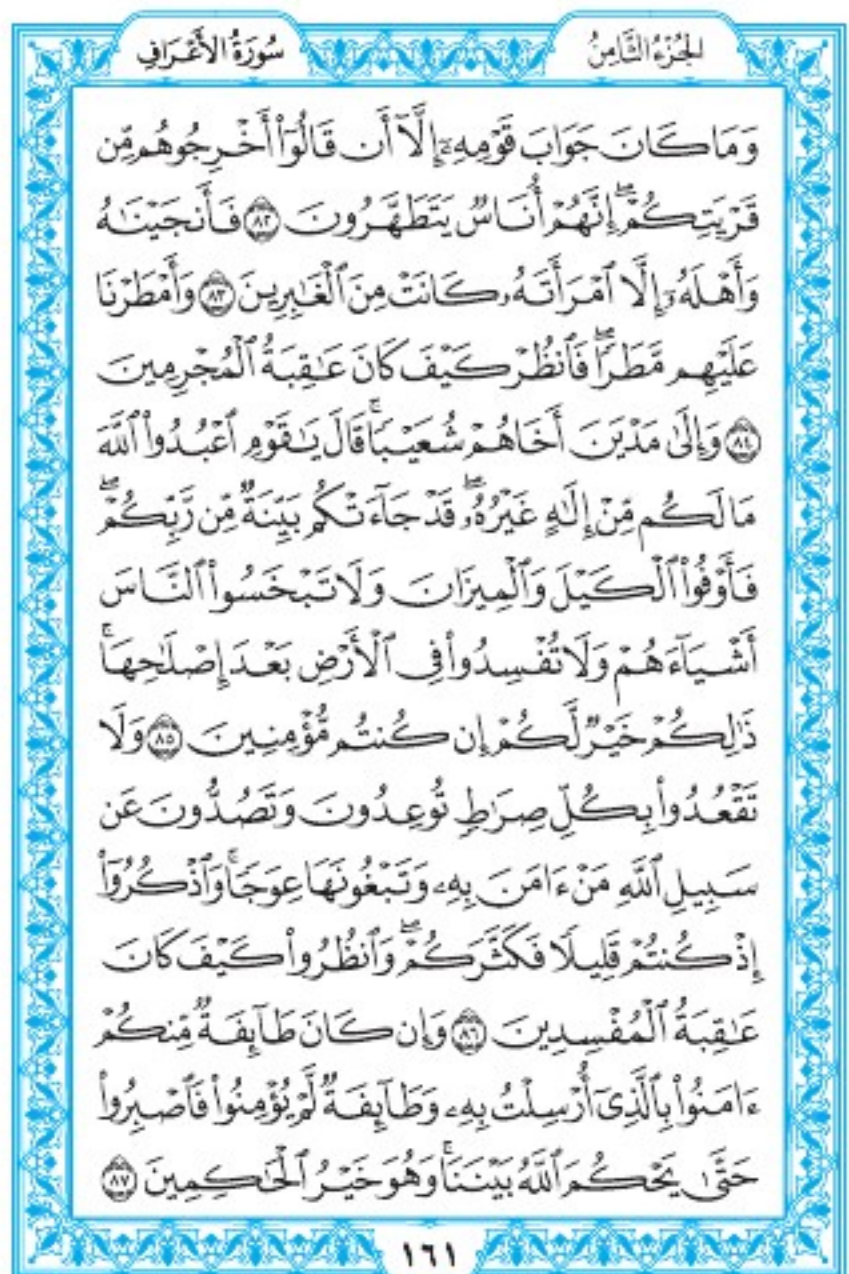 الجُزْءُ الثَّامِنُ
سُورَةُ الأَعْرَافِ
وَمَا كَانَ جَوَابَ قَوْمِهِۦٓ إِلَّآ أَن قَالُوٓا۟ أَخْرِجُوهُم مِّن
قَرْيَتِكُمْ ۖ إِنَّهُمْ أُنَاسٌ يَتَطَهَّرُونَ ٨٢ فَأَنجَيْنَٰهُ
وَأَهْلَهُۥٓ إِلَّا ٱمْرَأَتَهُۥ كَانَتْ مِنَ ٱلْغَٰبِرِينَ ٨٣ وَأَمْطَرْنَا
عَلَيْهِم مَّطَرًا ۖ فَٱنظُرْ كَيْفَ كَانَ عَٰقِبَةُ ٱلْمُجْرِمِينَ
٨٤ وَإِلَىٰ مَدْيَنَ أَخَاهُمْ شُعَيْبًا ۗ قَالَ يَٰقَوْمِ ٱعْبُدُوا۟ ٱللَّهَ
مَا لَكُم مِّنْ إِلَٰهٍ غَيْرُهُۥ ۖ قَدْ جَآءَتْكُم بَيِّنَةٌ مِّن رَّبِّكُمْ ۖ
فَأَوْفُوا۟ ٱلْكَيْلَ وَٱلْمِيزَانَ وَلَا تَبْخَسُوا۟ ٱلنَّاسَ
أَشْيَآءَهُمْ وَلَا تُفْسِدُوا۟ فِى ٱلْأَرْضِ بَعْدَ إِصْلَٰحِهَا ۚ
ذَٰلِكُمْ خَيْرٌ لَّكُمْ إِن كُنتُم مُّؤْمِنِينَ ٨٥ وَلَا
تَقْعُدُوا۟ بِكُلِّ صِرَٰطٍ تُوعِدُونَ وَتَصُدُّونَ عَن
سَبِيلِ ٱللَّهِ مَنْ ءَامَنَ بِهِۦ وَتَبْغُونَهَا عِوَجًا ۚ وَٱذْكُرُوٓا۟
إِذْ كُنتُمْ قَلِيلًا فَكَثَّرَكُمْ ۖ وَٱنظُرُوا۟ كَيْفَ كَانَ
عَٰقِبَةُ ٱلْمُفْسِدِينَ ٨٦ وَإِن كَانَ طَآئِفَةٌ مِّنكُمْ
ءَامَنُوا۟ بِٱلَّذِىٓ أُرْسِلْتُ بِهِۦ وَطَآئِفَةٌ لَّمْ يُؤْمِنُوا۟ فَٱصْبِرُوا۟
حَتَّىٰ يَحْكُمَ ٱللَّهُ بَيْنَنَا ۚ وَهُوَ خَيْرُ ٱلْحَٰكِمِينَ ٨٧
١٦١